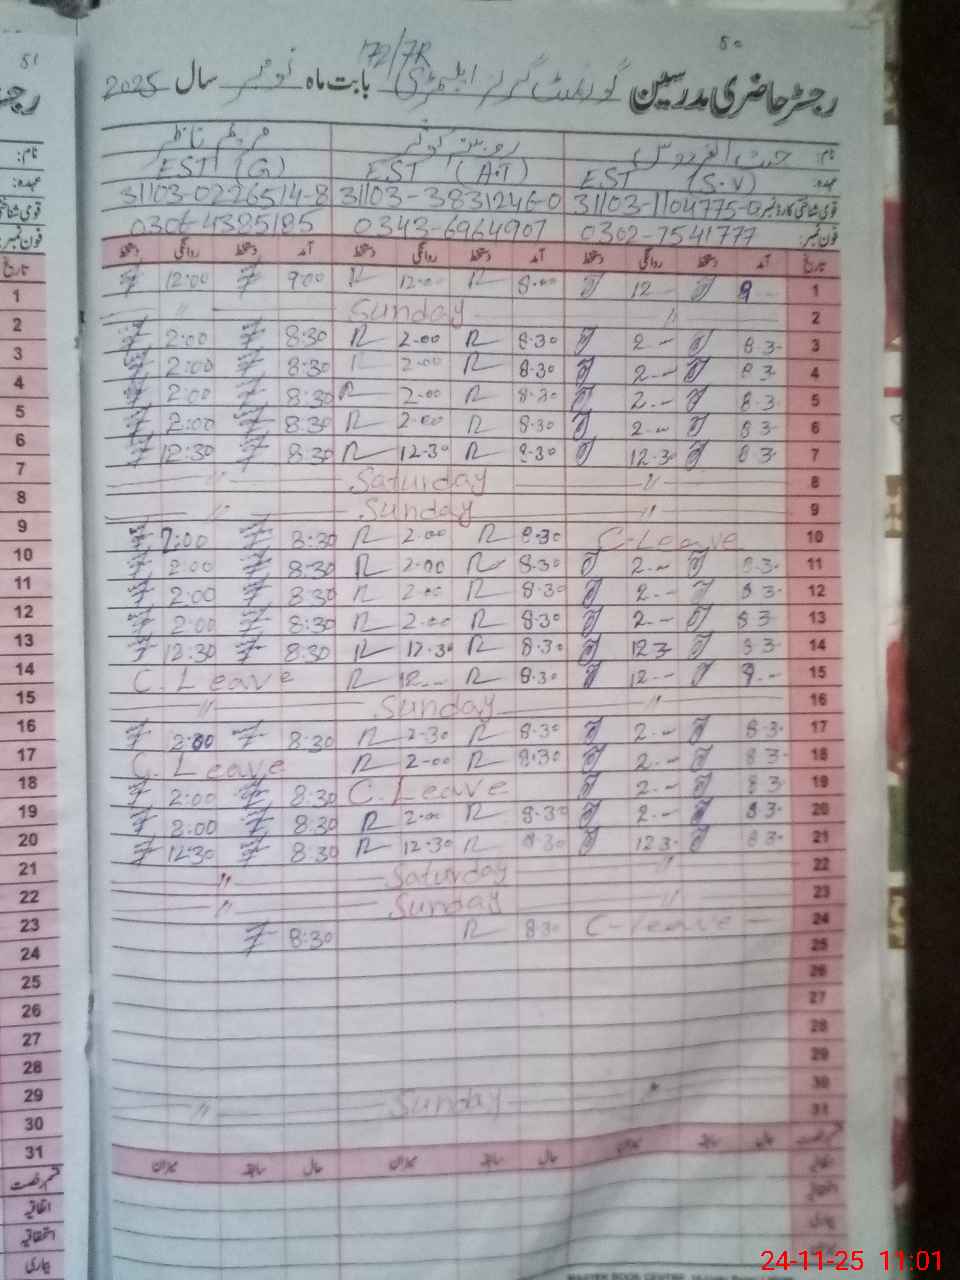 51
50
172/7R
رجسٹر حاضری مدرسین گورنمنٹ گرلز ایلیمنٹری بابت ماہ نومبر سال 2025
نام:
عہدہ: EST (S.V) EST (A.T) EST (G)
قومی شناختی کارڈ نمبر 31103-1104775-0 31103-3831246-0 31103-0226514-8
فون نمبر: 0302-7541777 0343-6964907 0306-4385185
تاریخ آمد دستخط روانگی دستخط آمد دستخط روانگی دستخط آمد دستخط روانگی دستخط
1 9-- 12-- 8.00 R 12.00 R 9:00 12:00
2 〃 Sunday 〃
3 8.3- 2-- 8.30 R 2.00 R 8:30 2:00
4 8 3 2-- 8.30 R 2.00 R 8:30 2:00
5 8.3- 2-- 8.30 R 2.00 R 8:30 2:00
6 8 3 2-- 8.30 R 2.00 R 8:30 2:00
7 8 3 12.30 8.30 R 12.30 R 8:30 12:30
8 〃 Saturday 〃
9 Sunday 〃
10 C-Leave 8.30 R 2.00 R 8:30 2:00
11 8.3- 2-- 8.30 R 2.00 R 8:30 2:00
12 8 3- 2-- 8.30 R 2.00 R 8:30 2:00
13 8 3 2-- 8.30 R 2.00 R 8:30 2:00
14 8 3- 12 3- 8.30 R 12.30 R 8:30 12:30
15 9-- 12-- 8.30 R 12-- R C. Leave
16 〃 Sunday 〃
17 8.3- 2-- 8.30 R 2.30 R 8:30 2:00
18 8 3- 2-- 8.30 R 2.00 R C. Leave
19 8 3 2-- C. Leave 8:30 2:00
20 8 3- 2-- 8.30 R 2.00 R 8:30 2:00
21 8 3- 12 3- 8.30 R 12.30 R 8:30 12:30
22 〃 Saturday 〃
23 〃 Sunday 〃
24 C-leave 8.30 R 8:30
25
26
27
28
29
30 〃 Sunday 〃
31
میزان سابقہ حال میزان سابقہ حال میزان سابقہ حال
رج
نام:
عہدہ:
فون نمبر:
تاریخ
1
2
3
4
5
6
7
8
9
10
11
12
13
14
15
16
17
18
19
20
21
22
23
24
25
26
27
28
29
30
31
قسم رخصت
اتفاقیہ
استحقاقیہ
بیماری
24-11-25 11:01